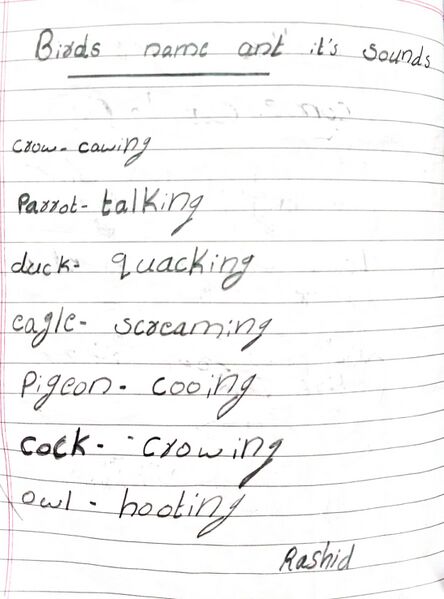 Birds name ant it's sounds
crow- cawing
Parrot- talking
duck- quacking
eagle- screaming
Pigeon- cooing
cock- crowing
owl- hooting
Rashid